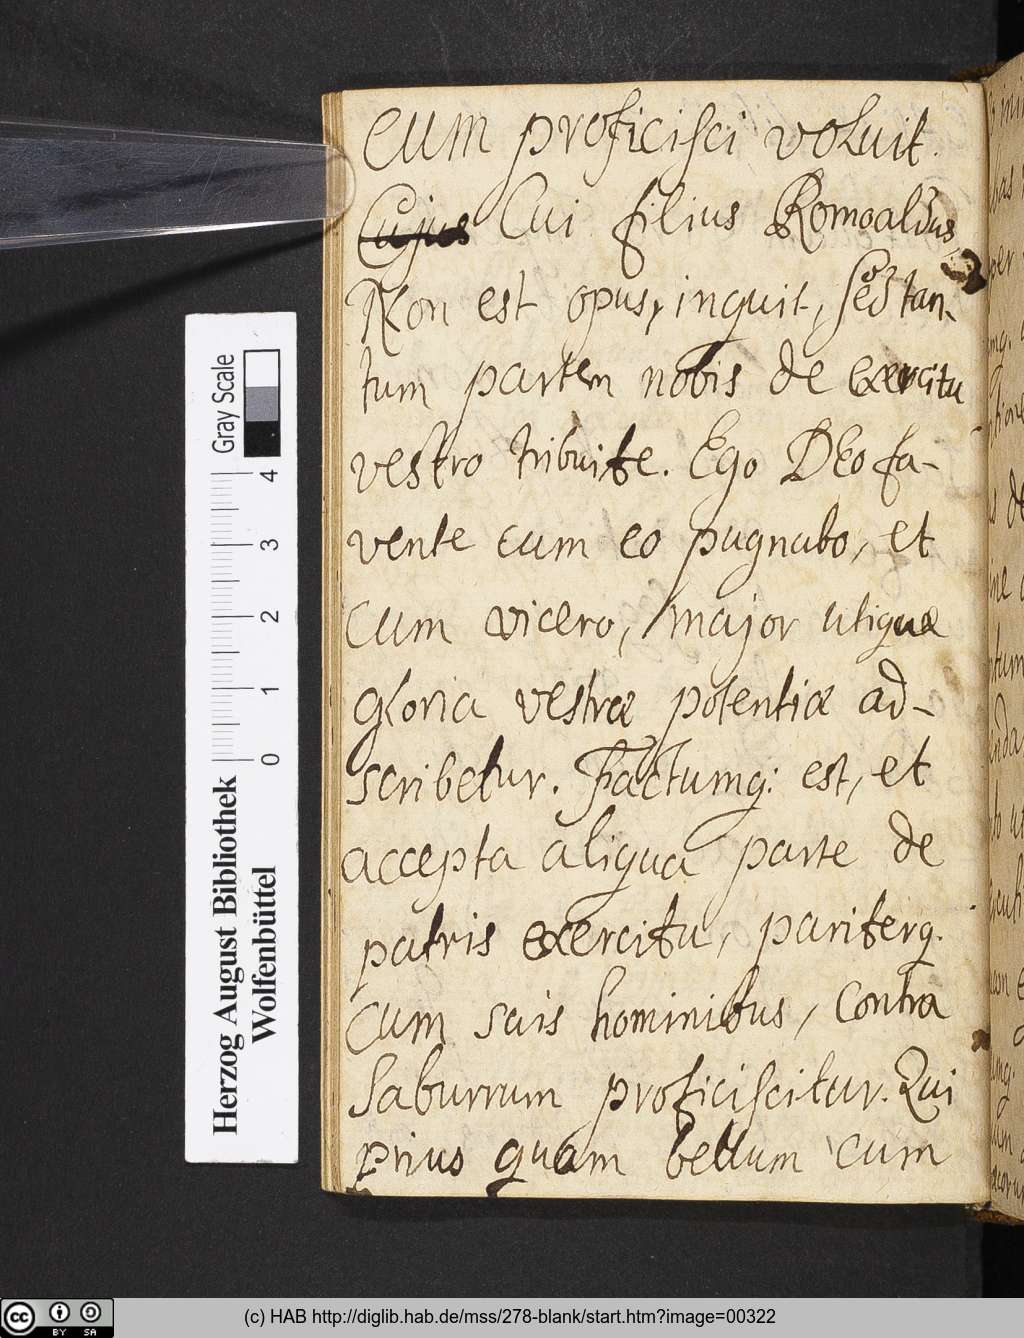 eum proficisci voluit.
Cujus Cui filius Romoaldus,
Non est opus, inquit, sed tan-
tum partem nobis de exercitu
vestro tribuite. Ego DEo fa-
vente cum eo pugnabo, et
cum vicero, major utiquæ
gloria vestræ potentiæ ad-
scribetur. Factumq: est, et
accepta aliqua parte de
patris exercitu, pariterq.
cum suis hominibus, contra
Saburrum proficiscitur. Qui
prius quam bellum cum
Gray Scale
4
3
2
1
0
Herzog August Bibliothek
Wolfenbüttel
cc BY SA
(c) HAB http://diglib.hab.de/mss/278-blank/start.htm?image=00322